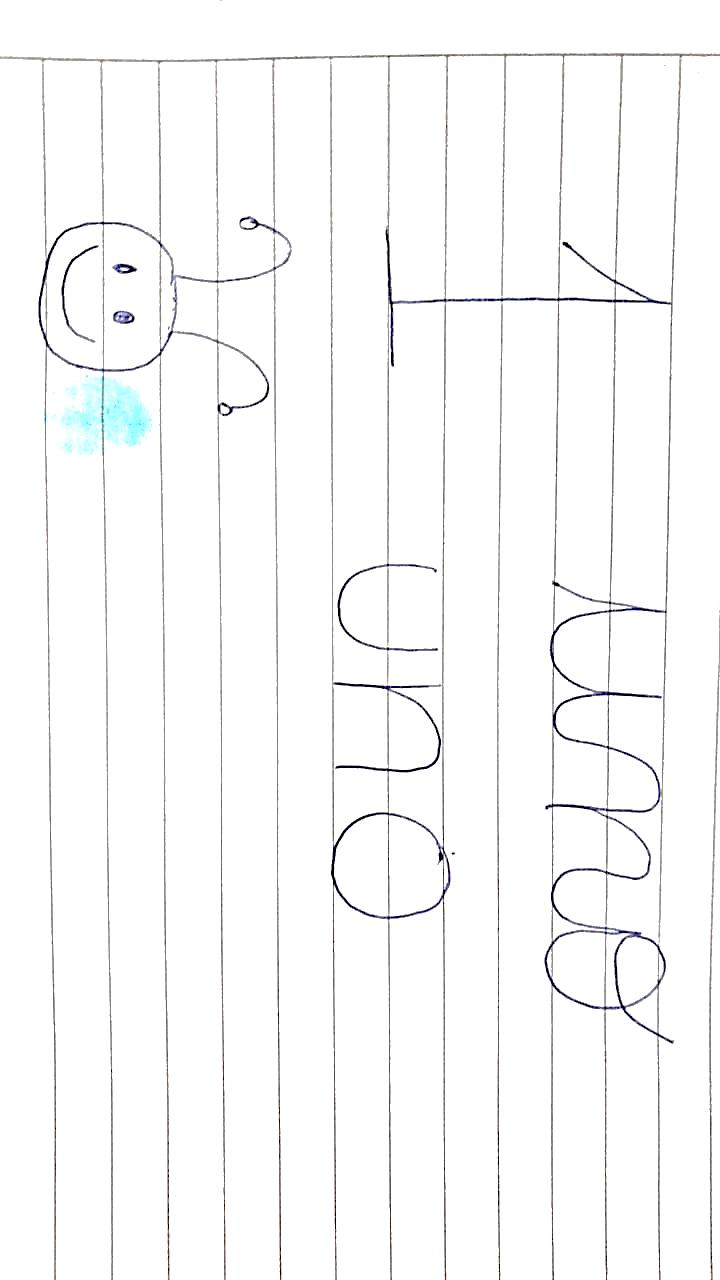 1 uno
uno